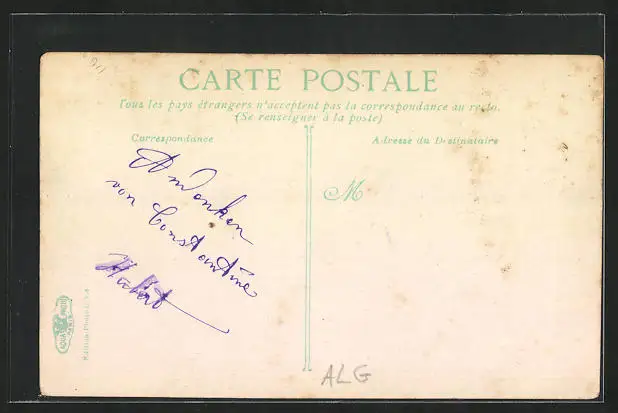 CARTE POSTALE
Tous les pays étrangers n'acceptent pas la correspondance au recto.
(Se renseigner à la poste)
Correspondance
Adresse du Destinataire
M
Andenken
von Constantine
ALG